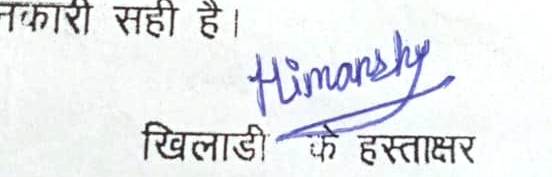 नकारी सही है।
Himanshy
खिलाडी के हस्ताक्षर